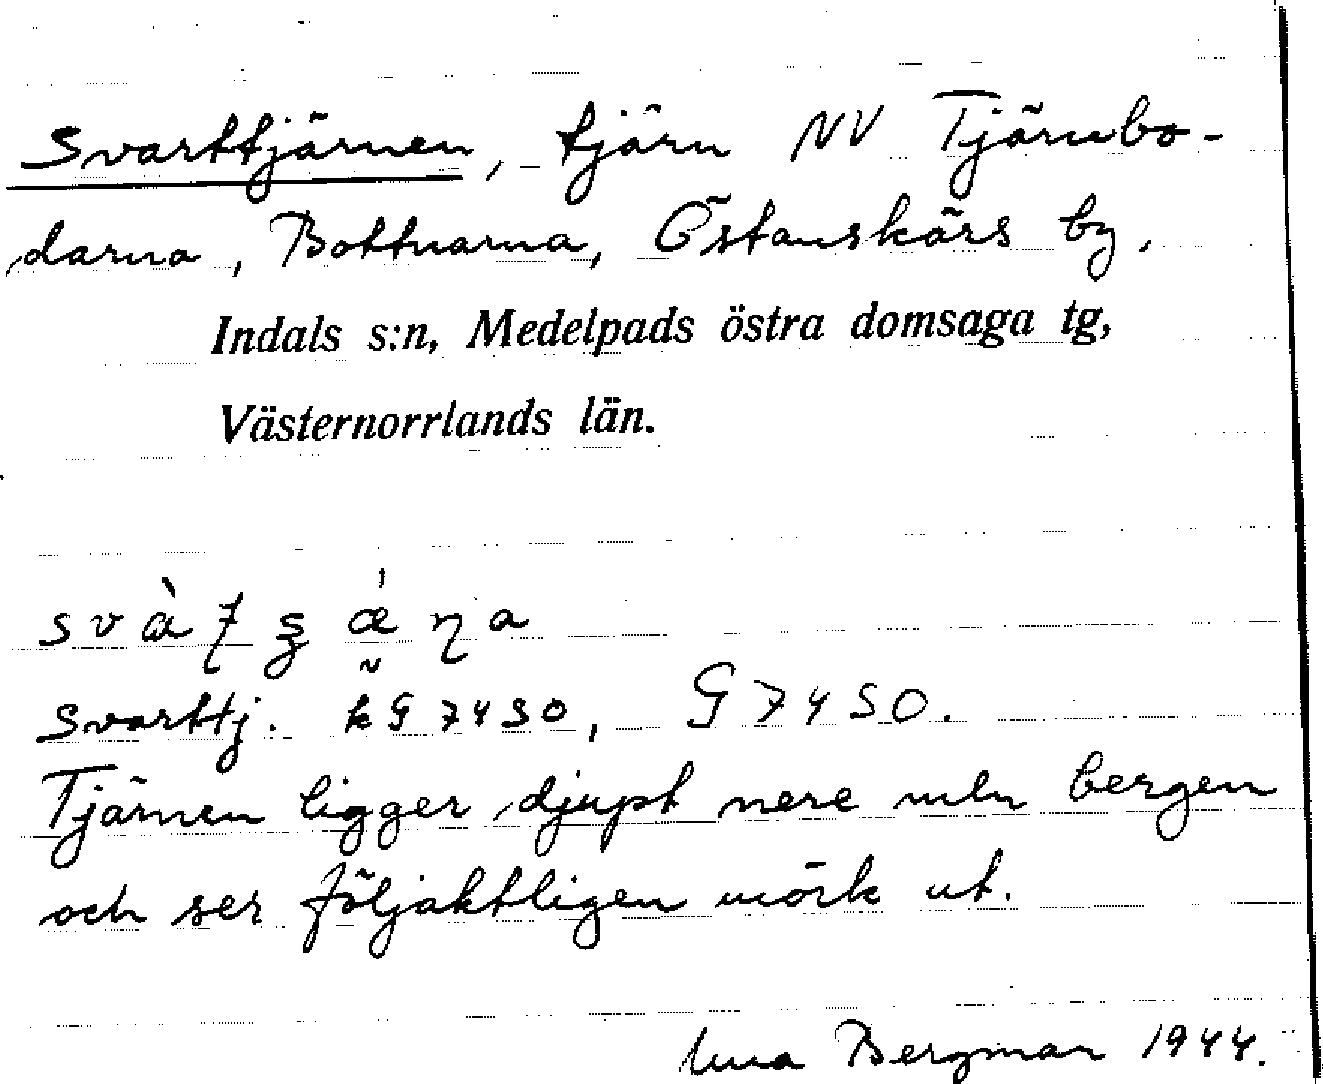 Svarttjärnen, tjärn NV Tjärnbo-
darna, Bottnarna, Östanskärs by,
Indals s:n, Medelpads östra domsaga tg,
Västernorrlands län.
svarttj. kG 7450, G 7450.
Tjärnen ligger djupt nere mln bergen
och ser följaktligen mörk ut.
Bergman 1944.